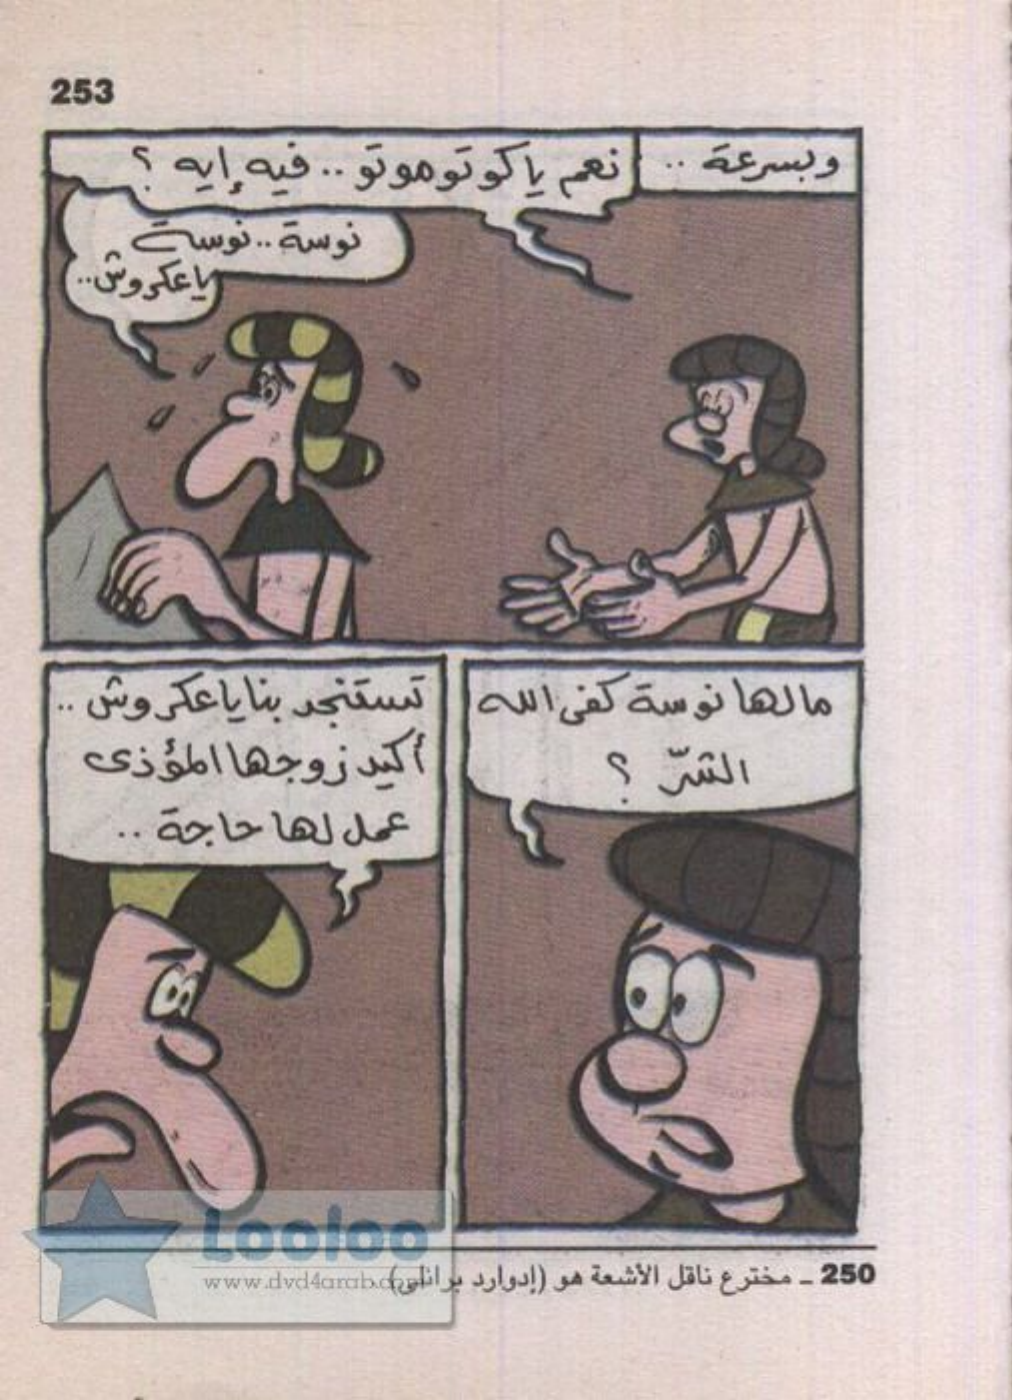 253
وبسرعة ..
نعم ياكوتوموتو .. فيه إيه ؟
نوسة .. نوسة
ياعكروش..
مالها نوسة كفى الله
الشرّ ؟
تستنجد بنا ياعكروش ..
أكيد زوجها المؤذى
عمل لها حاجة ..
250 ـ مخترع ناقل الأشعة هو (إدوارد برانلى).
Looloo
www.dvd4arab.com